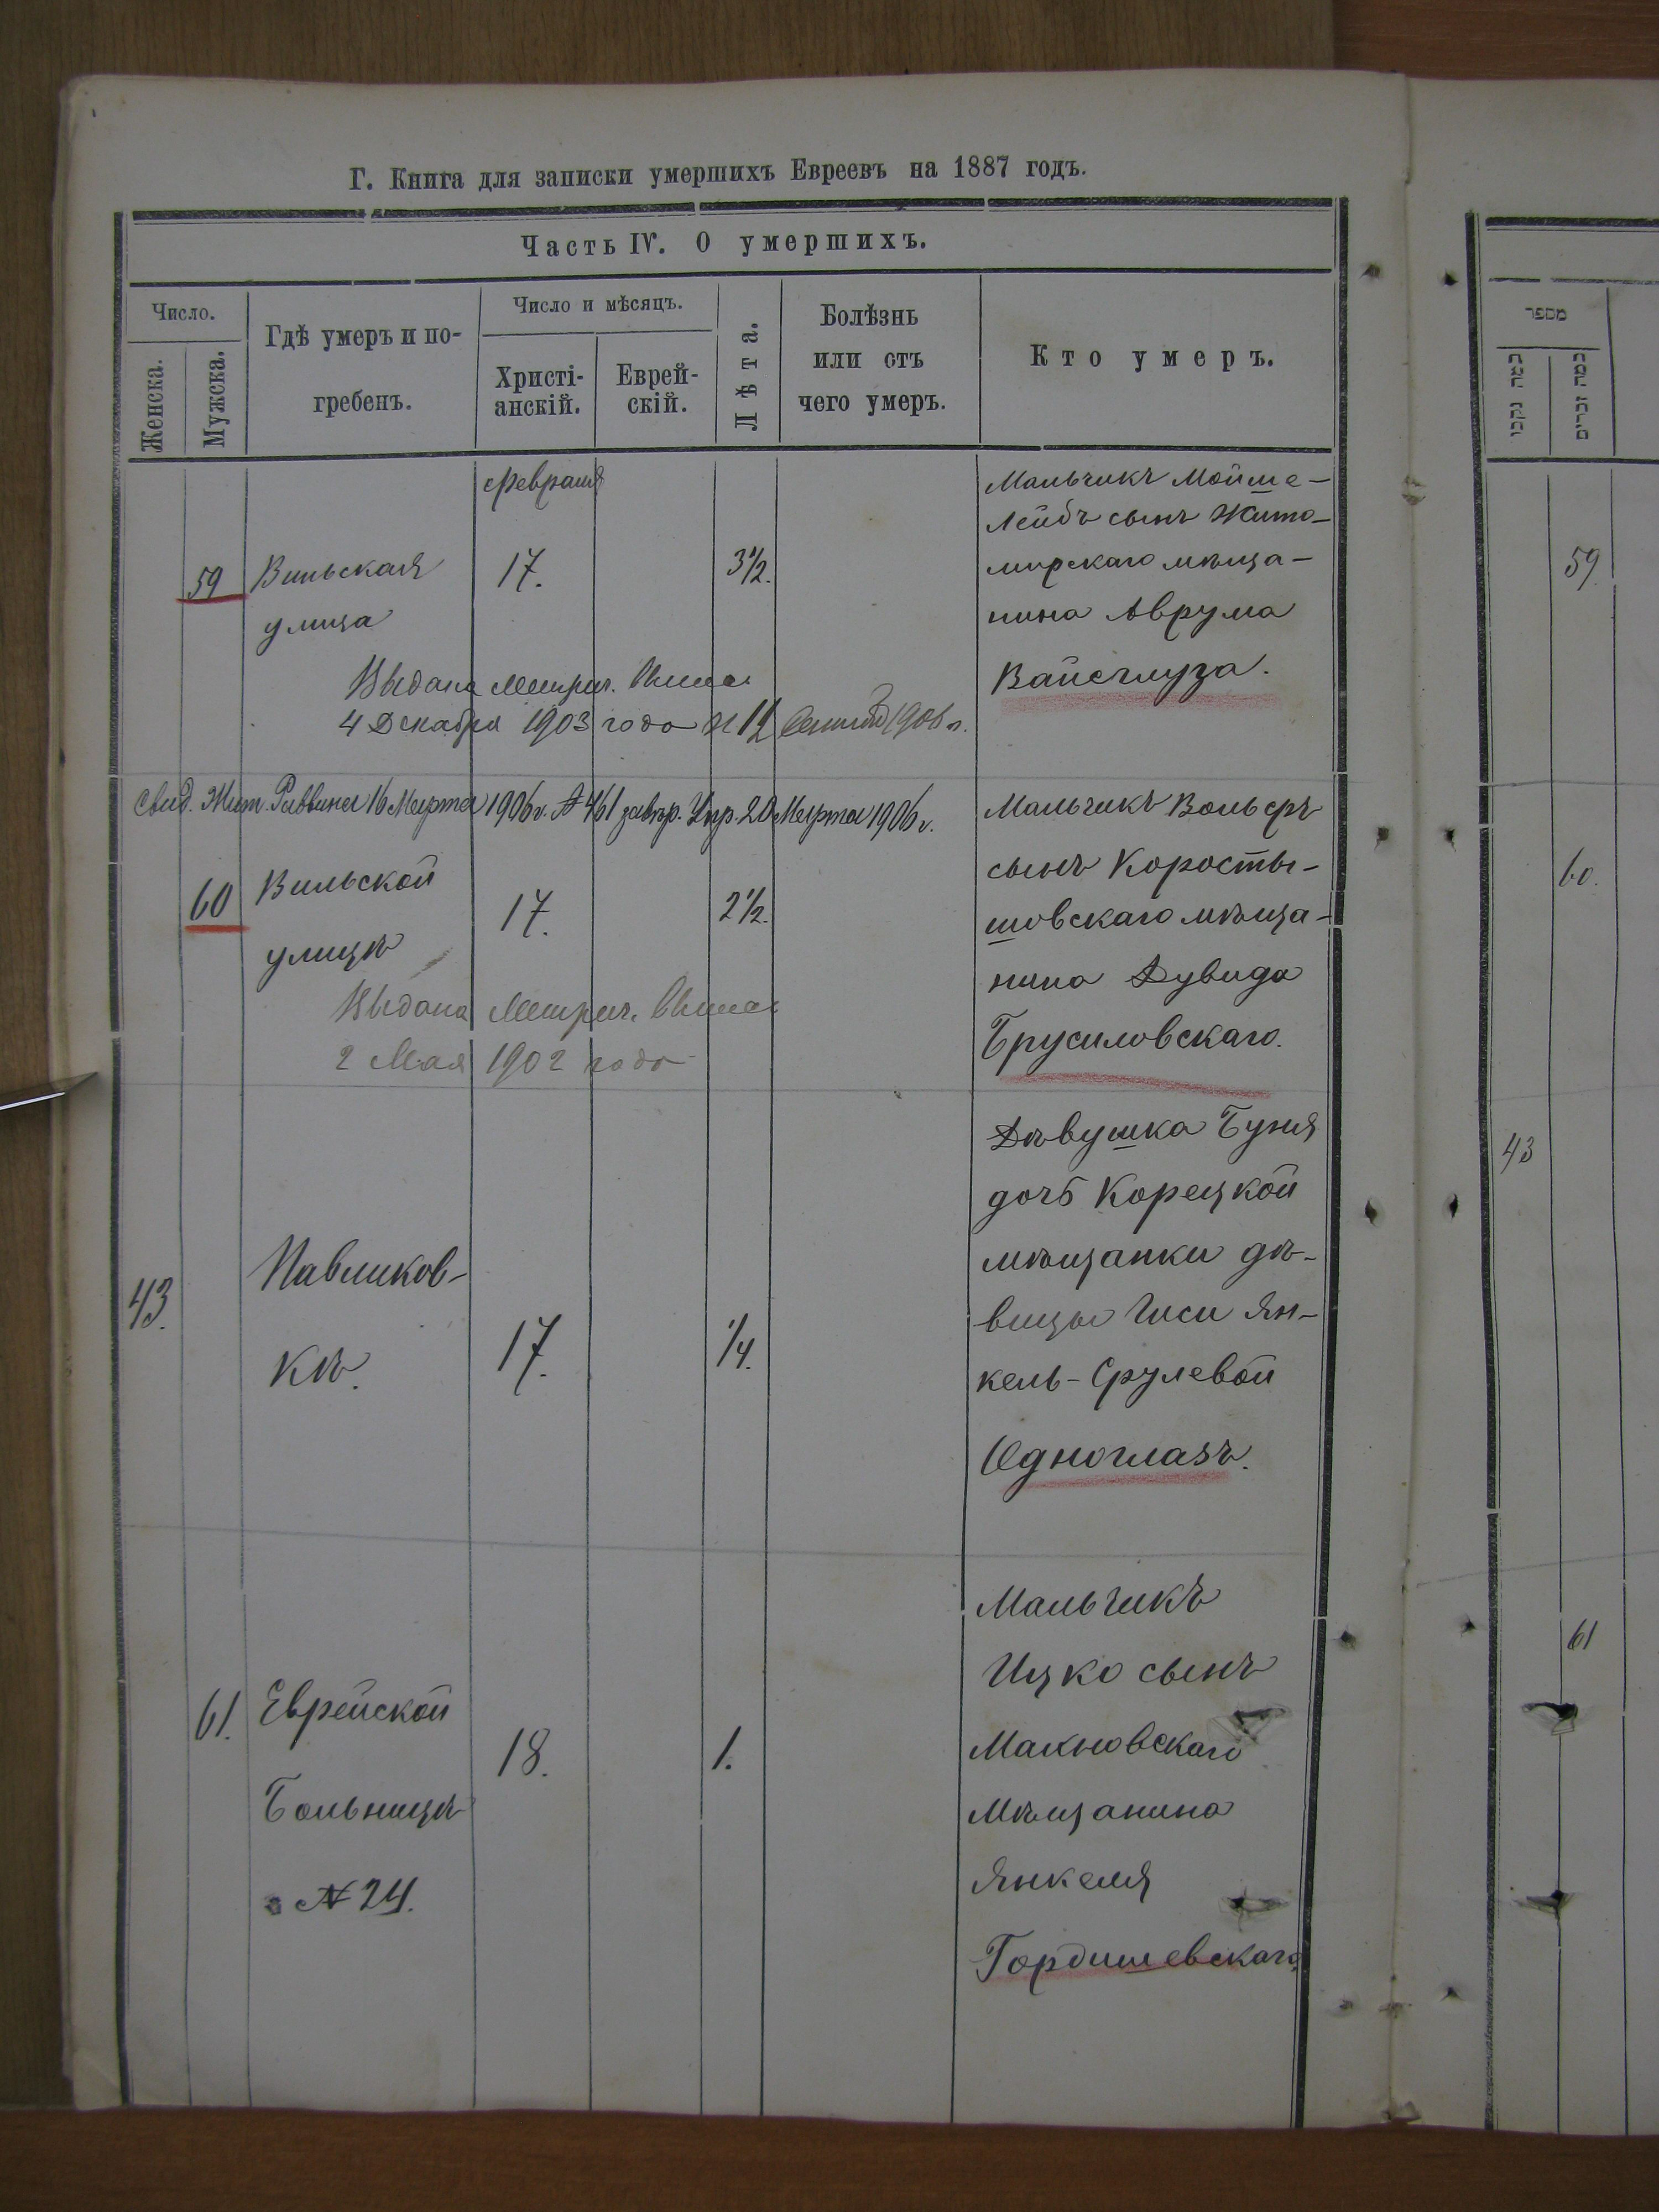 Г. Книга для записки умершихъ Евреевъ на 1887 годъ.
Часть IV. О умершихъ.
Число.
Женска.
Мужска.
Гдѣ умеръ и по-
гребенъ.
Число и мѣсяцъ.
Христі-
анскій.
Еврей-
скій.
Лѣта.
Болѣзнь
или отъ
чего умеръ.
Кто умеръ.
מספר
כמה נקבו
כמה זכרים
февраля
59
Вильская
улица
17.
3 1/2.
Мальчикъ Мойше-
Лейбъ сынъ Жито-
мирскаго мѣща-
нина Аврума
Вайсглуза.
59.
Выдана Метрич. Выпись
4 Декабря 1903 года и 14 1908 г.
Свид. Жит. Раввина 16 Марта 1906 г. № 461 завѣр. Упр. 20 Марта 1906 г.
60
Вильской
улицѣ
17.
2 1/2.
Мальчикъ Вольфъ
сынъ Коросты-
шовскаго мѣща-
нина Дувида
Брусиловскаго.
60.
Выдана Метрич. Выпись
2 Мая 1902 года
43.
Павликов-
кѣ.
17.
1/4.
Дѣвушка Буня
дочь Корецкой
мѣщанки дѣ-
вицы Гиси Ян-
кель-Срулевой
Одноглазъ.
43
61.
Еврейской
Больницѣ
№ 24.
18.
1.
Мальчикъ
Ицко сынъ
Махновскаго
Мѣщанина
Янкеля
Гордишевскаго
61